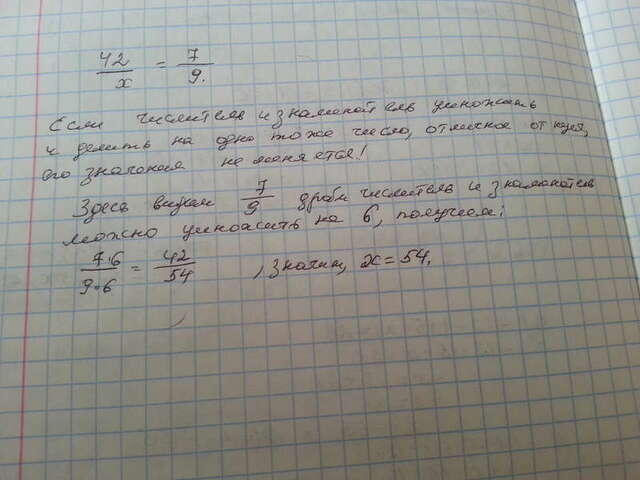 42/x = 7/9.
Если числитель и знаменатель умножить
и делить на одно тоже число, отличное от нуля,
его значения не меняется!
Здесь видим 7/9 дроби числитель и знаменатель
можно умножить на 6, получаем:
7·6/9·6 = 42/54 , значит, x = 54.